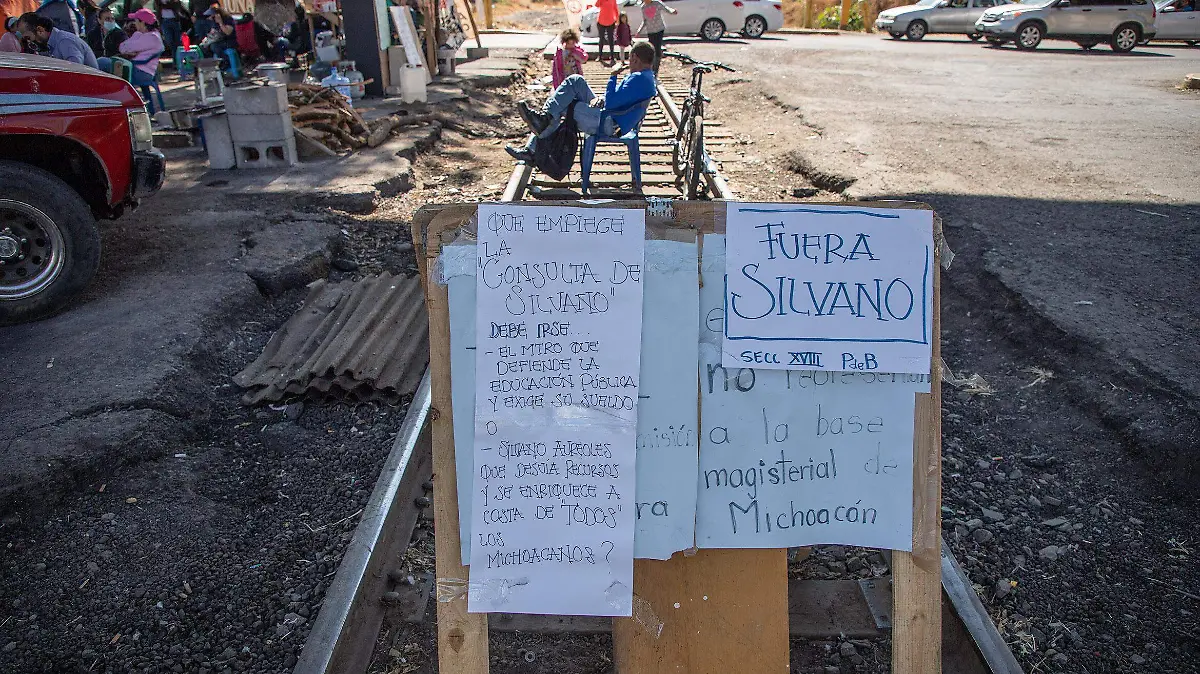 QUE EMPIECE
LA
"CONSULTA DE
SILVANO"
DEBE IRSE...
- EL MTRO QUE
DEFIENDE LA
EDUCACIÓN PÚBLICA
Y EXIGE SU SUELDO
O
- SILVANO AUREOLES
QUE DESVIA RECURSOS
Y SE ENRIQUECE A
COSTA DE "TODOS"
LOS
MICHOACANOS?
FUERA
SILVANO
SECC XVIII PdeB
no
misión
a la base
magisterial de
ra
Michoacán